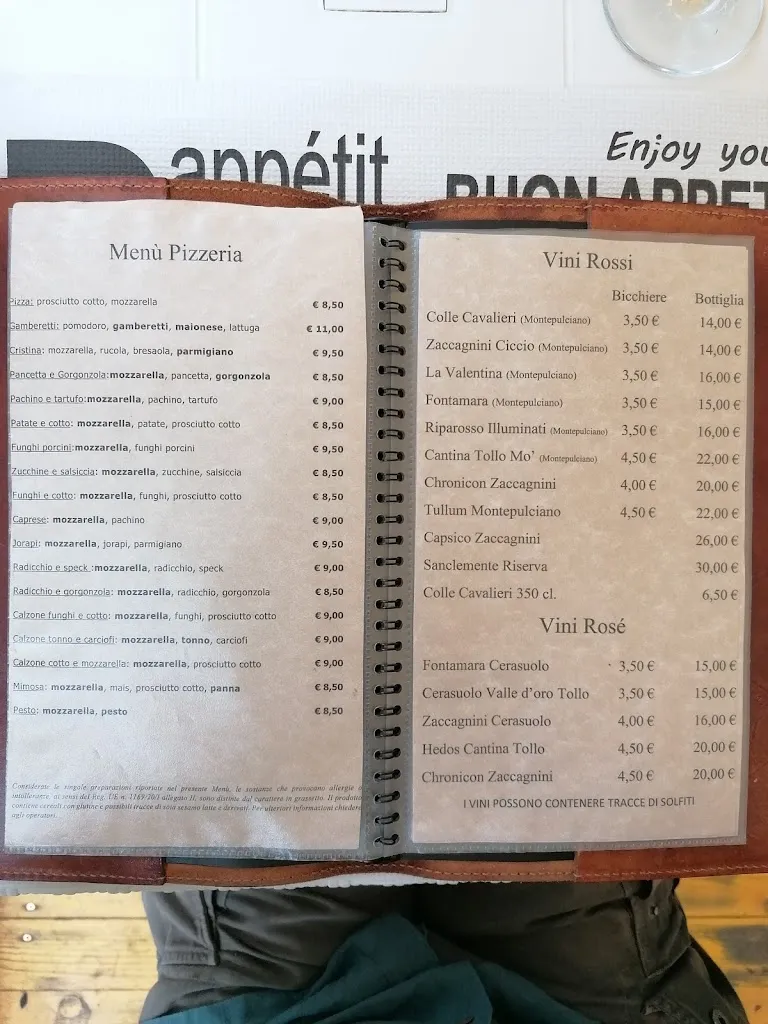 appétit
Enjoy you
BUON APPET
Menù Pizzeria
Pizza: prosciutto cotto, mozzarella € 8,50
Gamberetti: pomodoro, gamberetti, maionese, lattuga € 11,00
Cristina: mozzarella, rucola, bresaola, parmigiano € 9,50
Pancetta e Gorgonzola:mozzarella, pancetta, gorgonzola € 8,50
Pachino e tartufo:mozzarella, pachino, tartufo € 9,00
Patate e cotto: mozzarella, patate, prosciutto cotto € 8,50
Funghi porcini:mozzarella, funghi porcini € 9,50
Zucchine e salsiccia: mozzarella, zucchine, salsiccia € 8,50
Funghi e cotto: mozzarella, funghi, prosciutto cotto € 8,50
Caprese: mozzarella, pachino € 9,00
Jorapi: mozzarella, jorapi, parmigiano € 9,50
Radicchio e speck :mozzarella, radicchio, speck € 9,00
Radicchio e gorgonzola: mozzarella, radicchio, gorgonzola € 8,50
Calzone funghi e cotto: mozzarella, funghi, prosciutto cotto € 9,00
Calzone tonno e carciofi: mozzarella, tonno, carciofi € 9,00
Calzone cotto e mozzarella: mozzarella, prosciutto cotto € 9,00
Mimosa: mozzarella, mais, prosciutto cotto, panna € 8,50
Pesto: mozzarella, pesto € 8,50
Considerate le singole preparazioni riportate nel presente Menù, le sostanze che provocano allergie o
intolleranze, ai sensi del Reg. UE n. 1169/2011 allegato II, sono distinte dal carattere in grassetto. Il prodotto
contiene cereali con glutine e possibili tracce di soia sesamo latte e derivati. Per ulteriori informazioni chiedere
agli operatori.
Vini Rossi
Bicchiere Bottiglia
Colle Cavalieri (Montepulciano) 3,50 € 14,00 €
Zaccagnini Ciccio (Montepulciano) 3,50 € 14,00 €
La Valentina (Montepulciano) 3,50 € 16,00 €
Fontamara (Montepulciano) 3,50 € 15,00 €
Riparosso Illuminati (Montepulciano) 3,50 € 16,00 €
Cantina Tollo Mo’ (Montepulciano) 4,50 € 22,00 €
Chronicon Zaccagnini 4,00 € 20,00 €
Tullum Montepulciano 4,50 € 22,00 €
Capsico Zaccagnini 26,00 €
Sanclemente Riserva 30,00 €
Colle Cavalieri 350 cl. 6,50 €
Vini Rosé
Fontamara Cerasuolo 3,50 € 15,00 €
Cerasuolo Valle d’oro Tollo 3,50 € 15,00 €
Zaccagnini Cerasuolo 4,00 € 16,00 €
Hedos Cantina Tollo 4,50 € 20,00 €
Chronicon Zaccagnini 4,50 € 20,00 €
I VINI POSSONO CONTENERE TRACCE DI SOLFITI